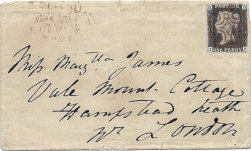 POSTAGE
ONE PENNY
Miss Marg^tta James
Vale Mount Cottage
Hampstead Heath
Nr London